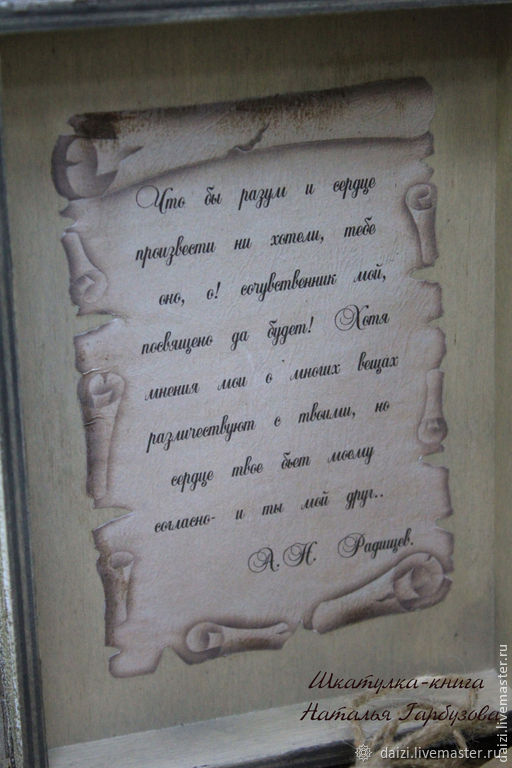 Что бы разум и сердце
произвести ни хотели, тебе
оно, о! сочувственник мой,
посвящено да будет! Хотя
мнения мои о многих вещах
различествуют с твоими, но
сердце твое бьет моему
согласно- и ты мой друг..
А.Н. Радищев.
Шкатулка-книга
Наталья Гарбузова
daizi.livemaster.ru
daizi.livemaster.ru